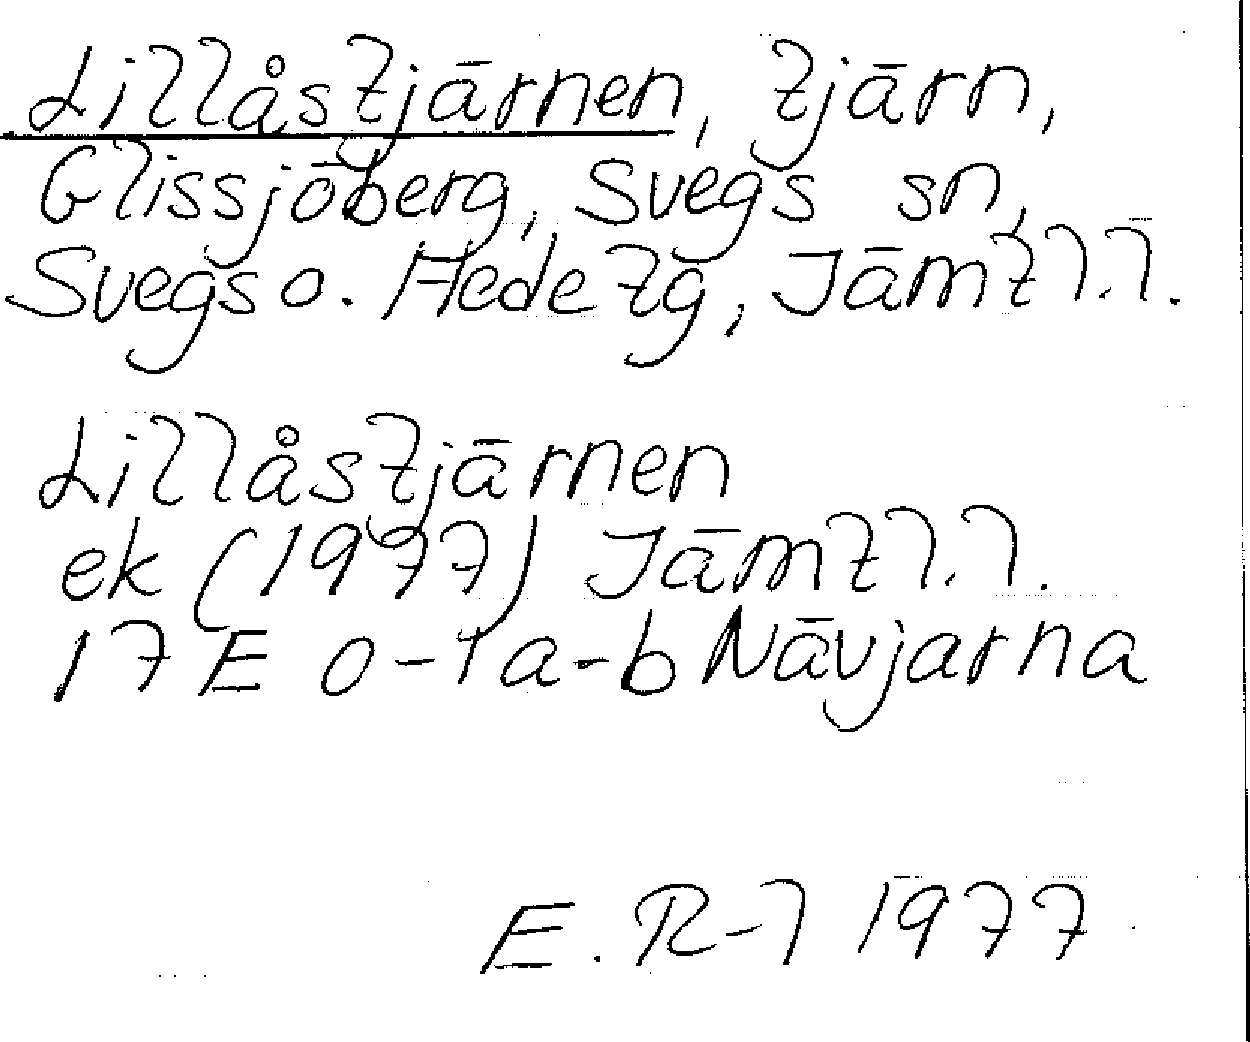 Lillåstjärnen, tjärn,
Glissjöberg, Svegs sn,
Svegs o. Hede tg, Jämtl.l.
Lillåstjärnen
ek (1977) Jämtl.l.
17 E 0-1 a-b Nävjarna
E. R-l 1977